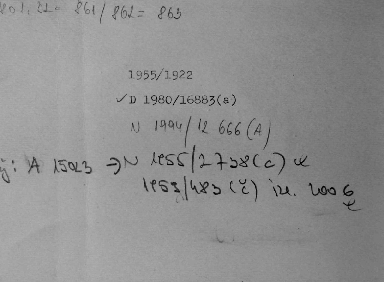 801,22= 861/862= 863
1955/1922
✓D 1980/16883(a)
N 1994/12 666(A)
A 15023 → N 1955/2738(c)
1953/483(č) in. 2006